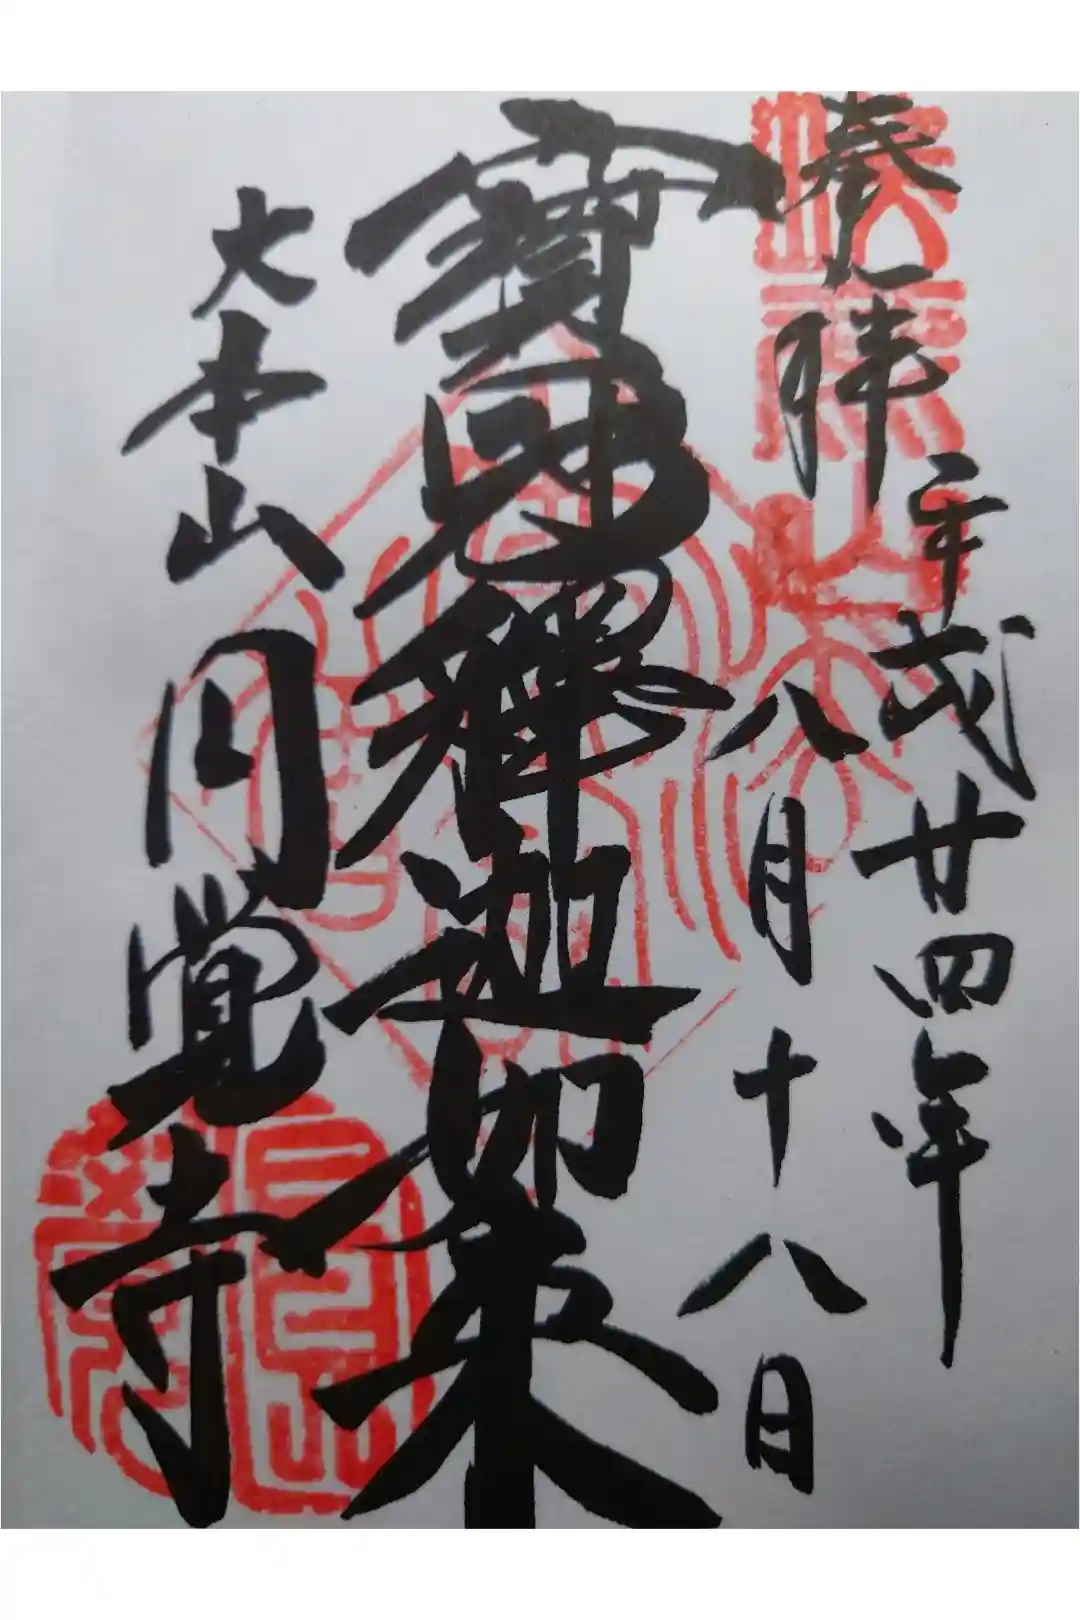 奉拝
平成廿四年
八月十八日
寳冠釋迦如来
大本山
円覚寺